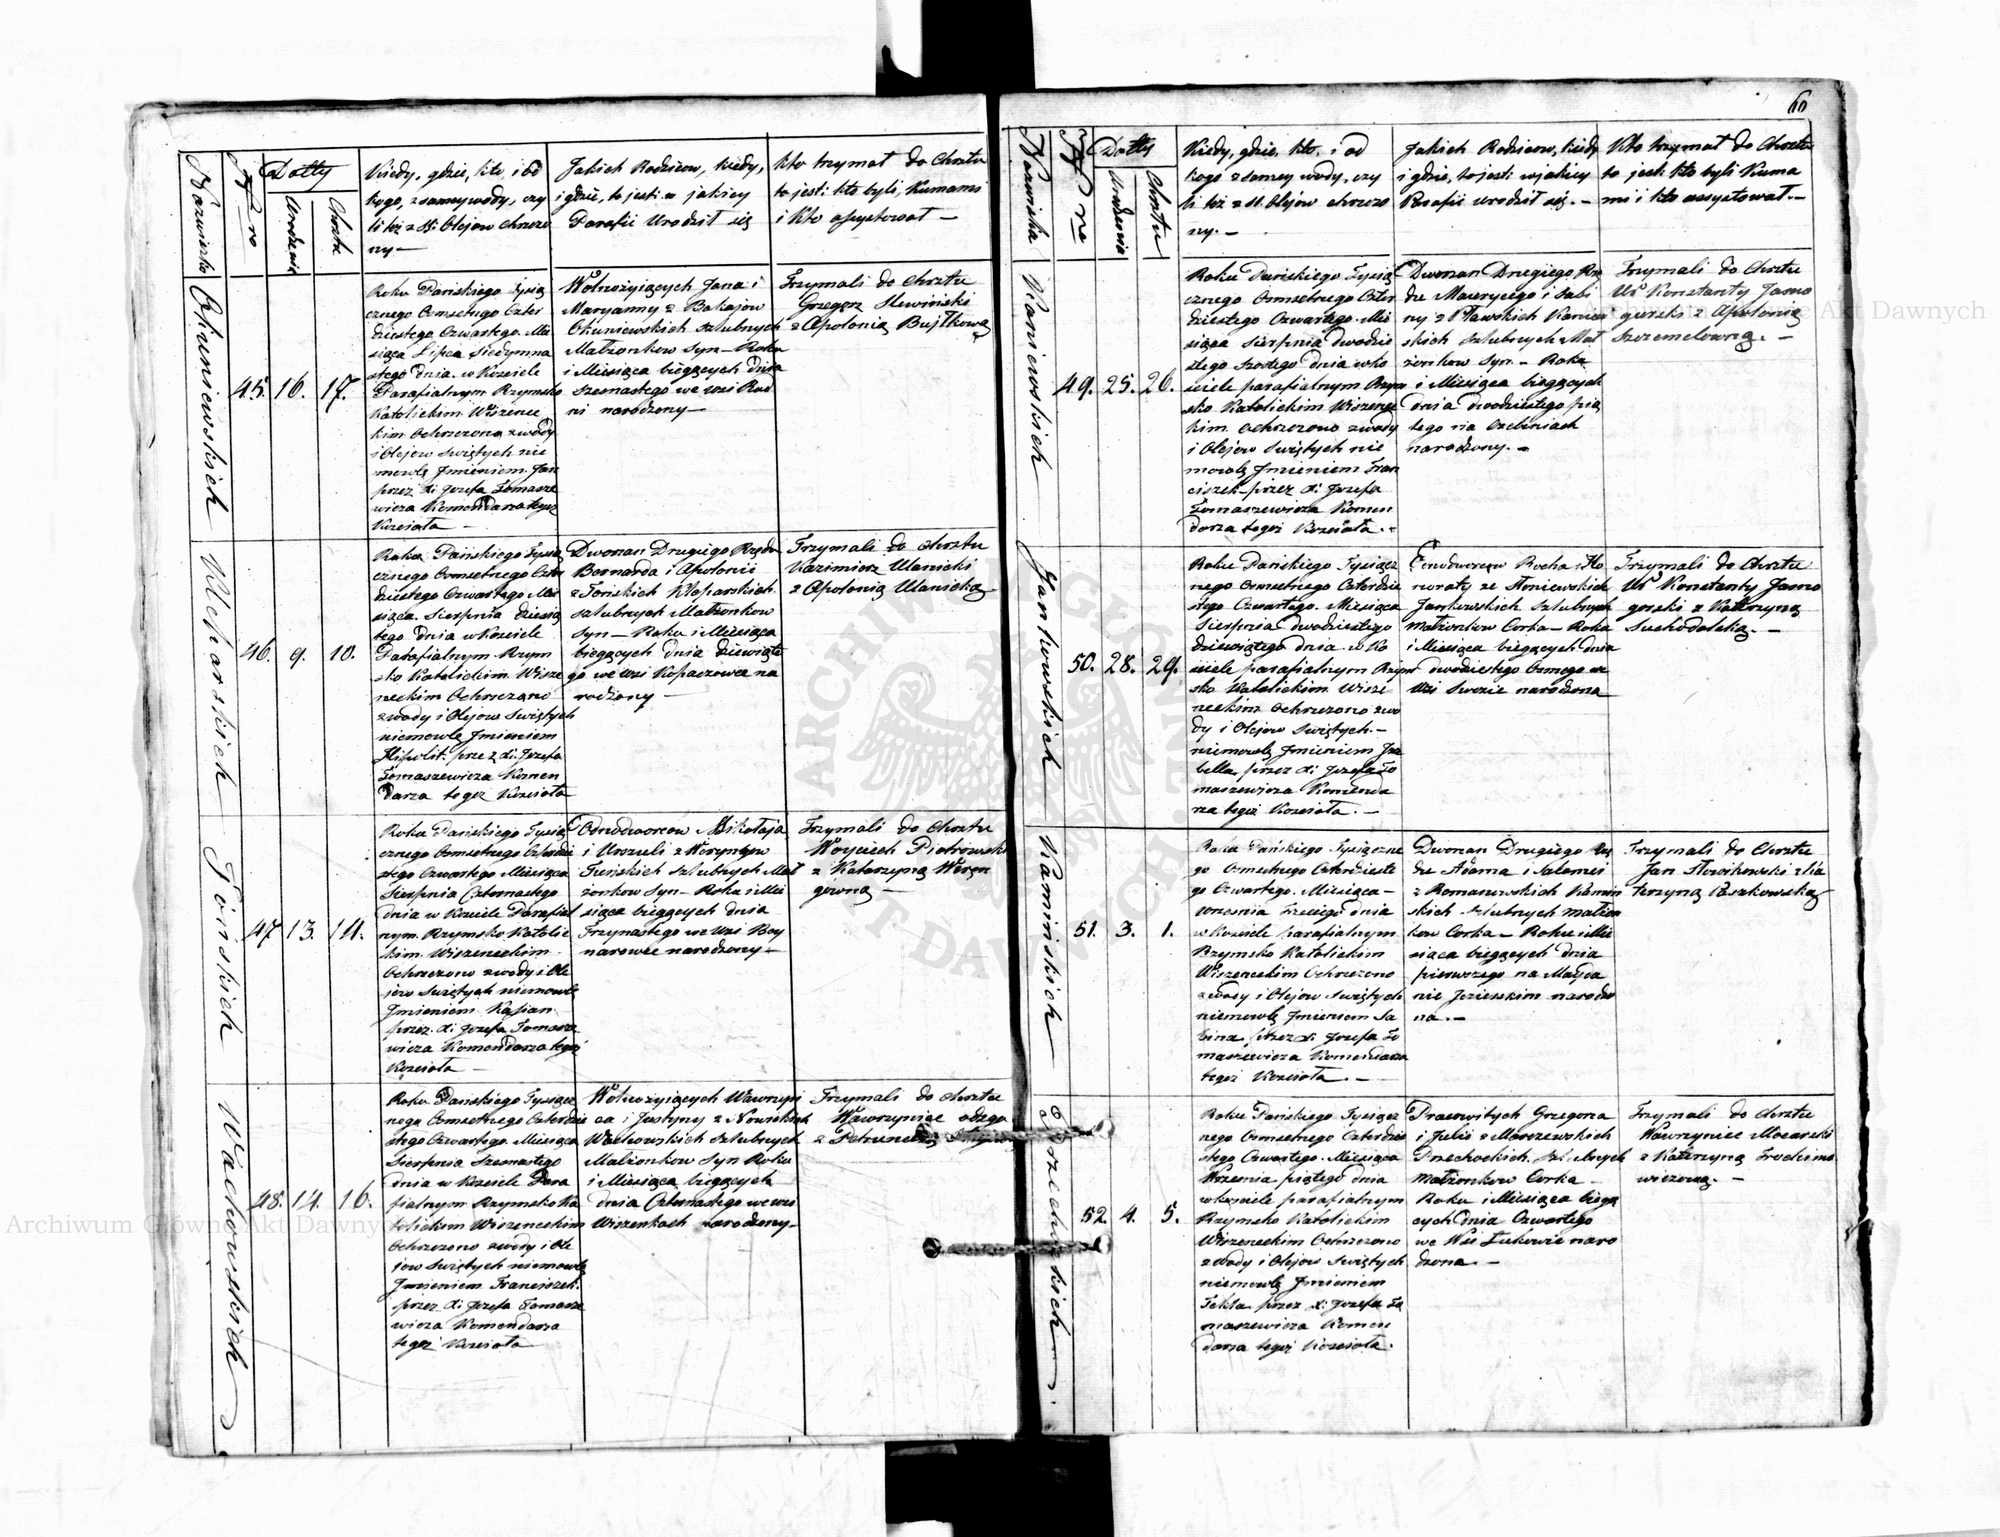 60
Nazwiska
Nro
Datty
Urodzenia
Chrztu
Kiedy, gdzie, kto, i od
kogo, z samey wody, czy
li też z SS: Olejow chrzczo
ny —
Jakich Rodzicow, kiedy,
i gdzie, to jest: w jakiey
Parafii Urodził się
kto trzymał do Chrztu
to jest: kto byli, Kumami
i kto assystował —
Okuniewskich
45.
16.
17.
Roku Pańskiego Tysią
cznego Osmsetnego Czter
dziestego Czwartego. Mie
siąca Lipca Siedymna
stego dnia. w Kosciele
Parafialnym Rzymsko
Katolickim Wiżenec
kim. Ochrzczono z wody
i Olejow Swiętych nie
mowlę Jmieniem Jan
przez X: Jozefa Tomasze
wicza Komendarza tegoż
Koscioła —
Wolnożyiących Jana i
Maryanny z Bokajow
Okuniewskich szlubnych
Małżonkow Syn — Roku
i Miesiąca bieżących dnia
szesnastego we wsi Rud
ni narodzony —
Trzymali do Chrztu
Grzegorz Slewiński
z Apolonią Bujłkową
Kleparskich
46.
9.
10.
Roku Pańskiego Tysią
cznego Osmsetnego Czter
dziestego Czwartego Mie
siąca. Sierpnia dziesią
tego dnia w Kosciele
Parafialnym Rzym
sko Katolickim Wisze
neckim Ochrzczono
z wody i Olejow Swiętych
niemowlę Jmieniem
Hipolit. przez X: Jozefa
Tomaszewicza Komen
darza tegoż Kosciola
Dworzan Drugiego Rzędu
Bernarda i Apolonii
z Tońskich Kleparskich
szlubnych Małżonkow
Syn — Roku i Miesiąca
bieżących dnia dziewiąte
go we wsi Kopaczowce na
rodzony —
Trzymali do chrztu
Kazimierz Ulanicki
z Apolonią Ulanicką
Tońskich
47
13.
14.
Roku Pańskiego Tysią
cznego Osmsetnego Czterdzie
stego Czwartego Miesiąca
Sierpnia Czternastego
dnia w Kosciele Parafial
nym. Rzymsko Katolic
kim. Wiszeneckim
Ochrzczono z wody i Ole
jow Swiętych niemowlę
Jmieniem Kasian
przez. X: Jozefa Tomasze
wicza Komendarza tegoż
Kosciola —
Odnodworcow Mikołaja
i Urszuli z Weryngow
Tońskich Szlubnych Mał
żonkow Syn — Roku i Mie
siąca bieżących dnia
Trzynastego we Wsi Boy
narowce narodzony —
Trzymali do Chrztu
Woyciech Piotrowski
z Katarzyną Weryn
gowną —
Wachowskich
48.
14.
16.
Roku Pańskiego Tysiącz
nego Osmsetnego Czterdzie
stego Czwartego. Miesiąca
Sierpnia Szesnastego
dnia w Kosciele Para
fialnym Rzymsko Ka
tolickim Wiszeneckim
Ochrzczono z wody i Ole
jow Swiętych niemowlę
Jmieniem Franciszek.
przez X: Jozefa Tomasze
wicza Komendarza
tegoż Kosciola
Wolnożyiących Wawrzyń
ca i Justyny z Nowickich
Wachowskich szlubnych
Małżonkow Syn Roku
i Miesiąca bieżących
dnia Czternastego we wsi
Wiszenkach narodzony —
Trzymali do chrztu
Wawrzyniec
z
Nazwiska
Nro
Datty
Urodzenia
Chrztu
Kiedy, gdzie, kto, i od
kogo z samey wody, czy
li też z SS. Olejów chrzczo
ny. —
Jakich Rodzicow, kiedy
i gdzie, to jest w jakiey
Parafii urodził się. —
Kto trzymał do Chrztu
to jest kto byli Kuma
mi i kto assystował. —
Kaniewskich
49.
25.
26.
Roku Pańskiego Tysią
cznego Osmsetnego Czter
dziestego Czwartego. Mie
siąca Sierpnia dwodzie
stego szostego dnia w Ko
sciele parafialnym Rzym
sko Katolickim Wiszenec
kim. Ochrzczono z wody
i Olejow Swiętych nie
mowlę Jmieniem Fran
ciszek przez X: Jozefa
Tomaszewicza Komen
darza tegoż Kosciola. —
Dworzan Drugiego Rzę
du Maurycego i Sabi
ny z Pławskich Kaniew
skich Szlubnych Mał
żonkow Syn. — Roku
i Miesiąca bieżących
dnia dwodziestego pią
tego na Osebiniach
narodzony. —
Trzymali do Chrztu
Ur. Konstanty Jamo
gurski z Apolonią
Szczemelowną. —
Jankowskich
50.
28.
29.
Roku Pańskiego Tysiącz
nego Osmsetnego Czterdzie
stego Czwartego. Miesiąca
Sierpnia dwodziestego
dziewiątego dnia w Ko
sciele parafialnym Rzym
sko Katolickim Wisze
neckim Ochrzczono z wo
dy i Olejow Swiętych. —
niemowlę Jmieniem Iza
bella. przez X: Jozefa To
maszewicza Komenda
rza tegoż Kosciola. —
Jankowskich Szlubnych
Małżonkow Corka — Roku
i Miesiąca bieżących dnia
dwodziestego Osmego we
Wsi Swozie narodzona
Trzymali do Chrztu
Ur. Konstanty Jamo
gorski z Katarzyną
Suchodolską. —
Kaminskich
51.
3.
1.
Roku Pańskiego Tysiączne
go Osmsetnego Czterdzieste
go Czwartego. Miesiąca —
Wresnia Trzeciego dnia
w Kosciele parafialnym
Rzymsko Katolickim
Wiszeneckim Ochrzczono
z wody i Olejow Swiętych
niemowlę Jmieniem Sa
bina, przez X: Jozefa To
maszewicza Komendarza
tegoż Kosciola. —
Dworzan Drugiego Rzę
du Adama i Salomei
z Romanowskich Kamin
skich szlubnych małżon
kow Corka — Roku i Mie
siąca bieżących dnia
pierwszego na Mayda
nie Jzieńskim narodzo
na. —
Trzymali do Chrztu
Jan Nowikowski z Ka
tarzyną Paszkowską
Przechockich
52.
4.
5.
Roku Pańskiego Tysiącz
nego Osmsetnego Czterdzie
stego Czwartego. Miesiąca
Wrzesnia piątego dnia
w kosciele parafialnym
Rzymsko Katolickim
Wiszeneckim Ochrzczono
z wody i Olejow Swiętych
niemowlę Jmieniem
Tekla przez X: Jozefa To
maszewicza Komen
darza tegoż Kosciola.
Pracowitych Grzegorza
i Julii z Morozewskich
Przechockich. Szlubnych
małżonkow Corka —
Roku i Miesiąca bieżą
cych dnia Czwartego
we Wsi Łukowie naro
dzona. —
Trzymali do Chrztu
Wawrzyniec Mocarski
z Katarzyną Trochimo
wiczową. —
Archiwum Główne Akt Dawnych
Akt Dawnych